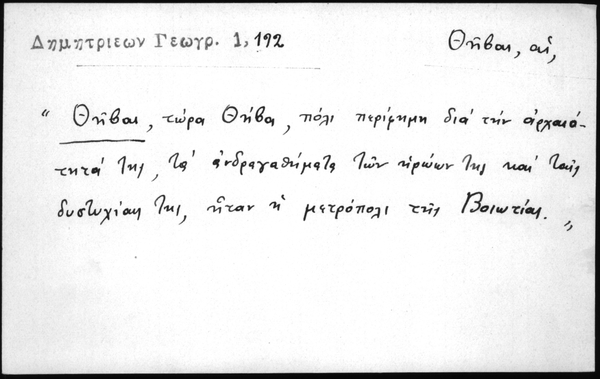 Δημητριεων Γεωγρ. 1, 192
Θῆβαι, αἱ,
“ Θῆβαι, τώρα Θήβα, πόλι περίφημη διά τήν ἀρχαιό-
τητά της, τά ἀνδραγαθήματα τῶν ἡρώων της καί ταῖς
δυστυχίαις της, ἦταν ἡ μετρόπολι τῆς Βοιωτίας. „